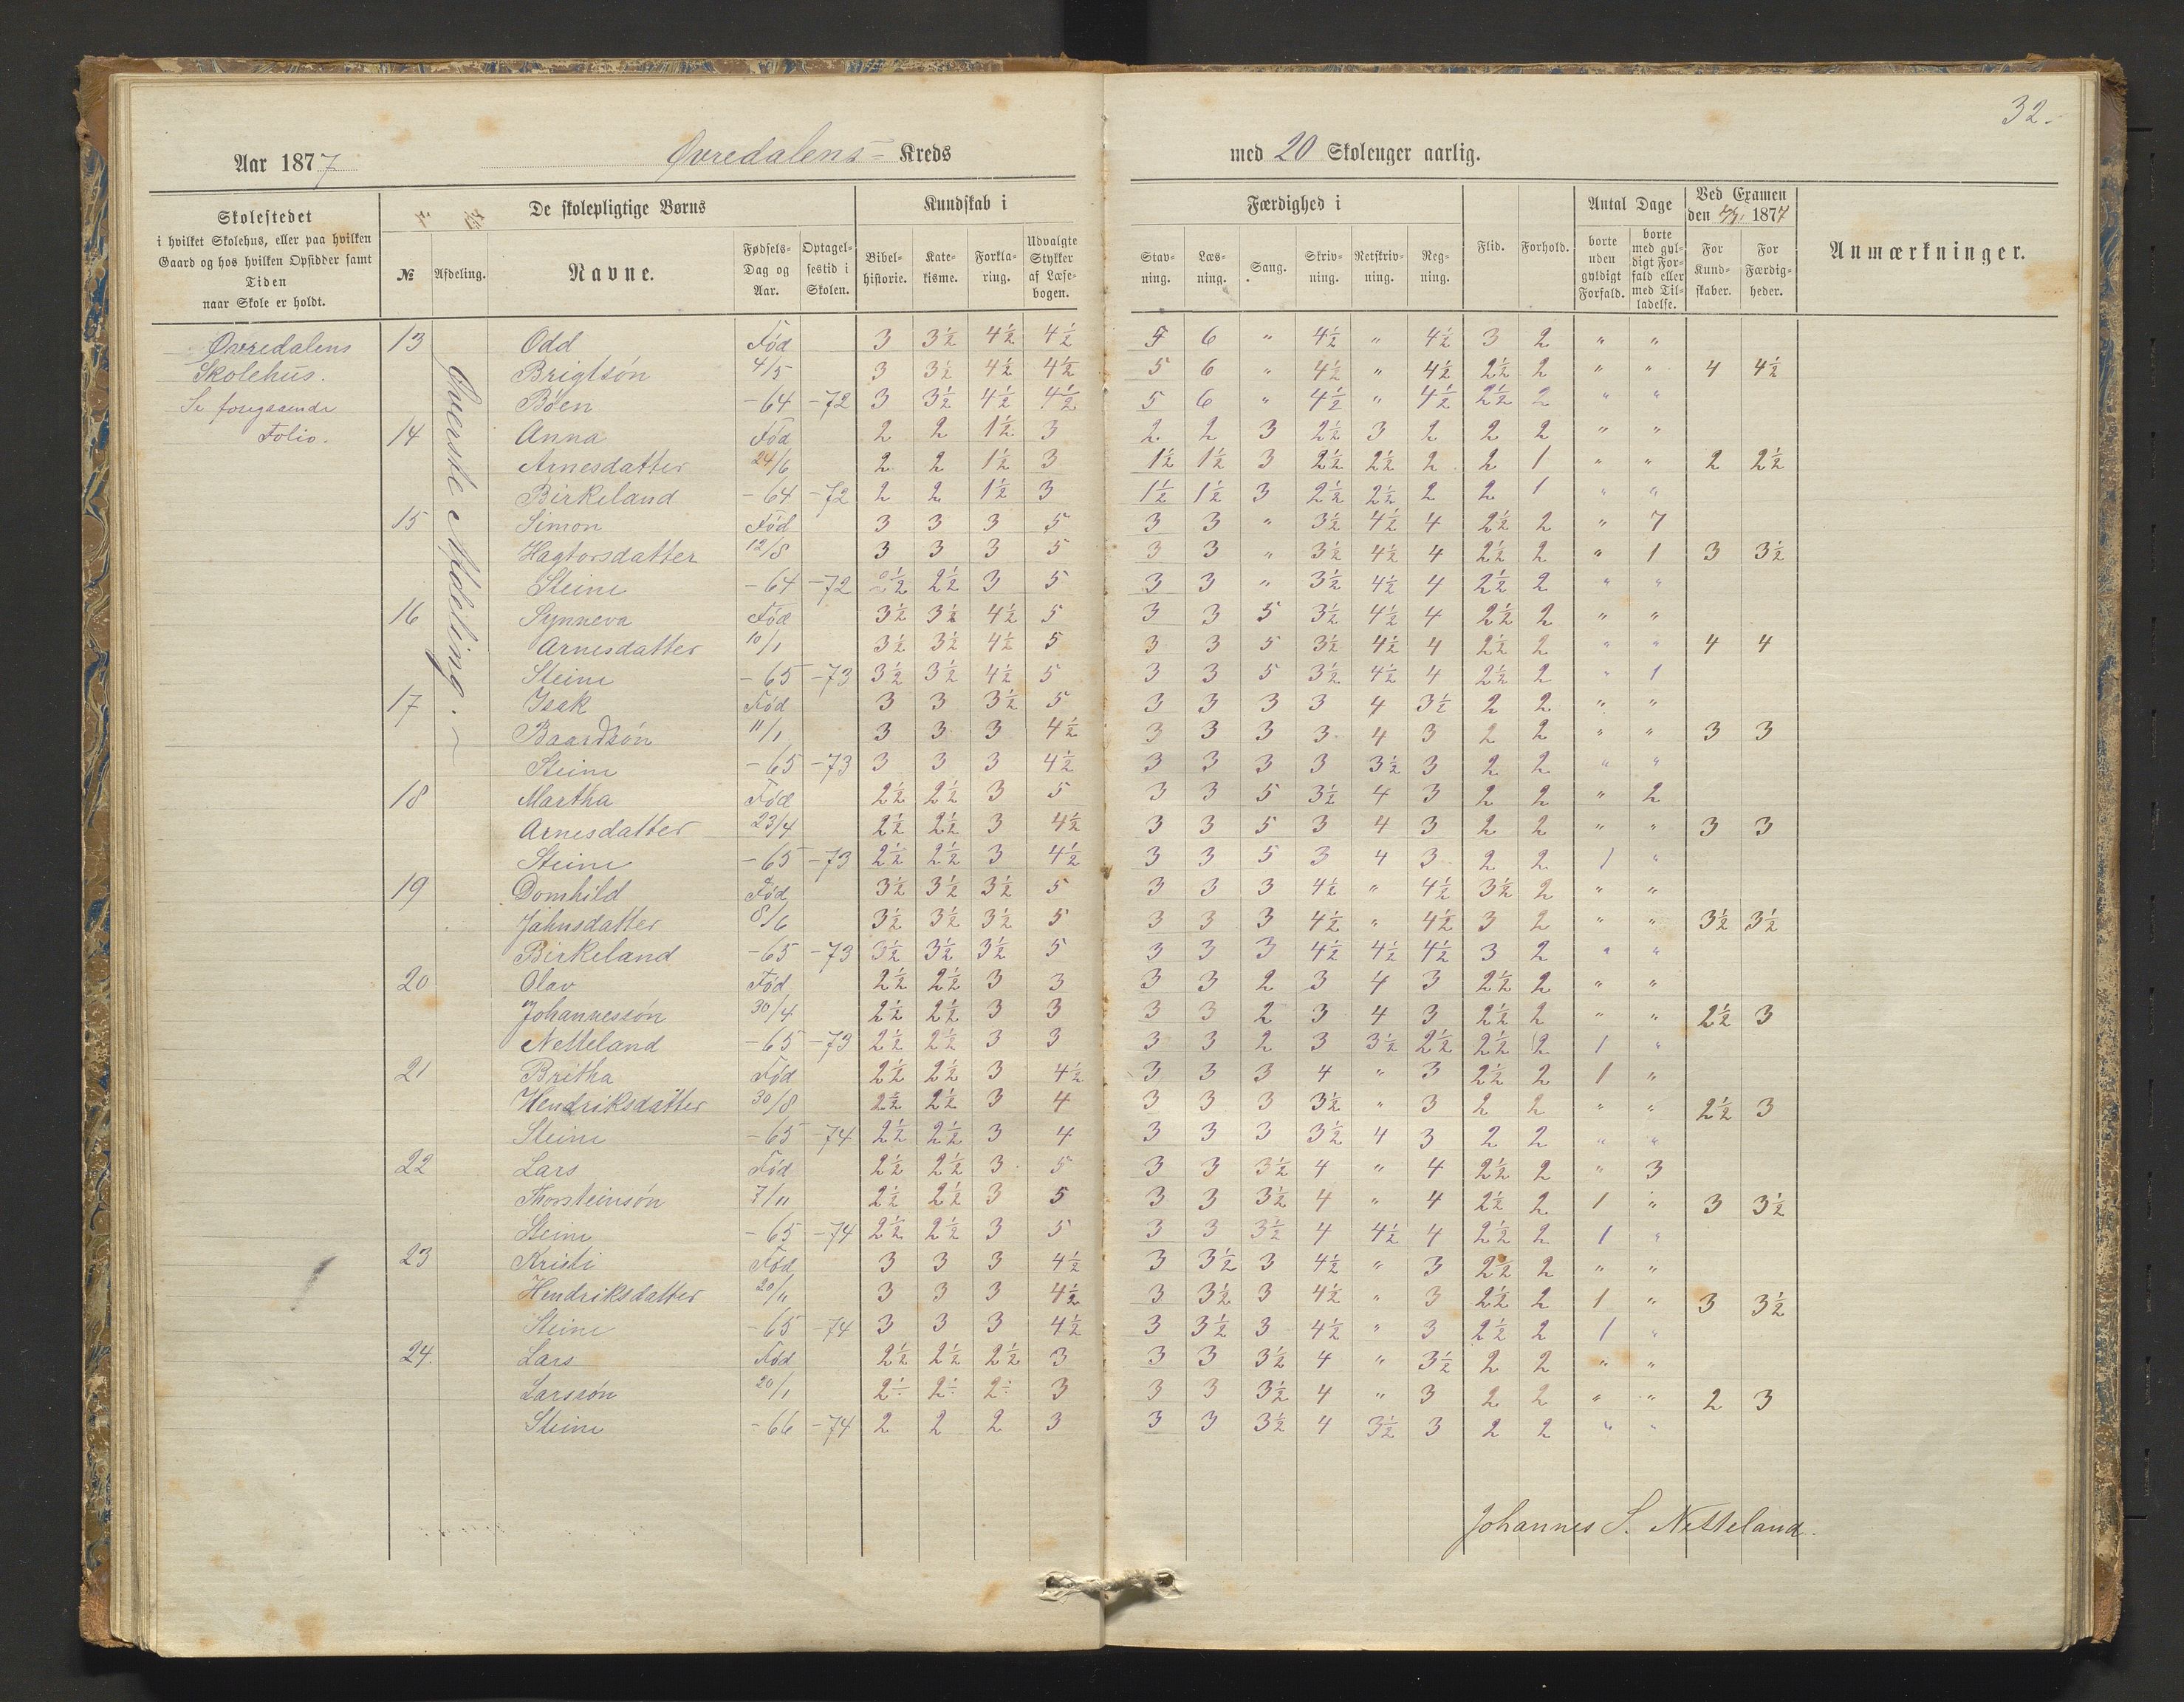 32.
Aar 1877 Øvredalens- Kreds med 20 Skoleuger aarlig.
Skolestedet i hvilket Skolehus, eller paa hvilken Gaard og hos hvilken Opsidder samt Tiden naar Skole er holdt.
De skolepligtige Børns
№ Afdeling. Navne. Fødsels-Dag og Aar. Optagelsestid i Skolen.
Kundskab i
Bibelhistorie. Katekisme. Forklaring. Udvalgte Stykker af Læsebogen.
Færdighed i
Stavning. Læsning. Sang. Skrivning. Retskrivning. Regning.
Flid. Forhold.
Antal Dage
borte uden gyldigt Forfald. borte med gyldigt Forfald eller med Tilladelse.
Ved Examen den 1877
For Kundskaber. For Færdigheder.
Anmærkninger.
Øvredalens Skolehus.
Se foregaaende Folio.
Øverste Afdeling.
13 Odd Fød 3 3½ 4½ 4½ 5 6 " 4½ " 4½ 3 2 " "
Brigtsøn 4/5 3 3½ 4½ 4½ 5 6 " 4½ " 4½ 2½ 2 " " 4 4½
Bøen -64 -72 3 3½ 4½ 4½ 5 6 " 4½ " 4½ 2½ 2 " "
14 Anna Fød 2 2 1½ 3 2 2 3 2½ 3 2 2 2 " "
Arnesdatter 24/6 2 2 1½ 3 1½ 1½ 3 2½ 2½ 2 2 1 " " 2 2½
Birkeland -64 -72 2 2 1½ 3 1½ 1½ 3 2½ 2½ 2 2 1 " "
15 Simon Fød 3 3 3 5 3 3 " 3½ 4½ 4 2½ 2 " 7
Hagtorsdatter 12/8 3 3 3 5 3 3 " 3½ 4½ 4 2½ 2 " 1 3 3½
Steine -64 -72 2½ 2½ 3 5 3 3 " 3½ 4½ 4 2½ 2 " "
16 Synneva Fød 3½ 3½ 4½ 5 3 3 5 3½ 4½ 4 2½ 2 " "
Arnesdatter 10/1 3½ 3½ 4½ 5 3 3 5 3½ 4½ 4 2½ 2 " " 4 4
Steine -65 -73 3½ 3½ 4½ 5 3 3 5 3½ 4½ 4 2½ 2 " 1
17 Isak Fød 3 3 3½ 5 3 3 3 3 4 3½ 2 2 " "
Baardsøn 11/1 3 3 3 4½ 3 3 3 3 4 3 2 2 " " 3 3
Steine -65 -73 3 3 3 4½ 3 3 3 3 3½ 3 2 2 " "
18 Martha Fød 2½ 2½ 3 5 3 3 5 3½ 4 3 2 2 " 2
Arnesdatter 23/4 2½ 2½ 3 4½ 3 3 5 3 4 3 2 2 " " 3 3
Steine -65 -73 2½ 2½ 3 4½ 3 3 5 3 4 3 2 2 1 "
19 Domhild Fød 3½ 3½ 3½ 5 3 3 3 4½ " 4½ 3½ 2 " "
Jahnsdatter 8/6 3½ 3½ 3½ 5 3 3 3 4½ " 4½ 3 2 " " 3½ 3½
Birkeland -65 -73 3½ 3½ 3½ 5 3 3 3 4½ 4½ 4½ 3 2 " "
20 Olav Fød 2½ 2½ 3 3 3 3 2 3 4 3 2½ 2 " "
Johannessøn 30/4 2½ 2½ 3 3 3 3 2 3 4 3 2½ 2 " " 2½ 3
Netteland -65 -73 2½ 2½ 3 3 3 3 2 3 3½ 2½ 2½ 2 1 "
21 Britha Fød 2½ 2½ 3 4½ 3 3 3 4 " 3 2½ 2 1 "
Hendriksdatter 30/8 2½ 2½ 3 4 3 3 3 3½ " 3 2 2 " " 2½ 3
Steine -65 -74 2½ 2½ 3 4 3 3 3 3½ 4 3 2 2 " "
22 Lars Fød 2½ 2½ 3 5 3 3 3½ 4 " 4 2½ 2 " 3
Thorsteinsøn 7/11 2½ 2½ 3 5 3 3 3½ 4 " 4 2½ 2 1 " 3 3½
Steine -65 -74 2½ 2½ 3 5 3 3 3½ 4 4½ 4 2½ 2 1 "
23 Kristi Fød 3 3 3 4½ 3 3½ 3 4½ " 3 2½ 2 " "
Hendriksdatter 20/11 3 3 3 4½ 3 3½ 3 4½ " 3 2½ 2 1 " 3 3½
Steine -65 -74 3 3 3 4½ 3 3½ 3 4½ " 3 2½ 2 1 "
24. Lars Fød 2½ 2½ 2½ 3 3 3 3½ 4 " 3½ 2 2 " "
Larssøn 20/1 2÷ 2÷ 2÷ 3 3 3 3½ 4 " 3 2 2 " " 2 3
Steine -66 -74 2 2 2 3 3 3 3½ 4 3½ 3 2 2 " "
Johannes S. Netteland.